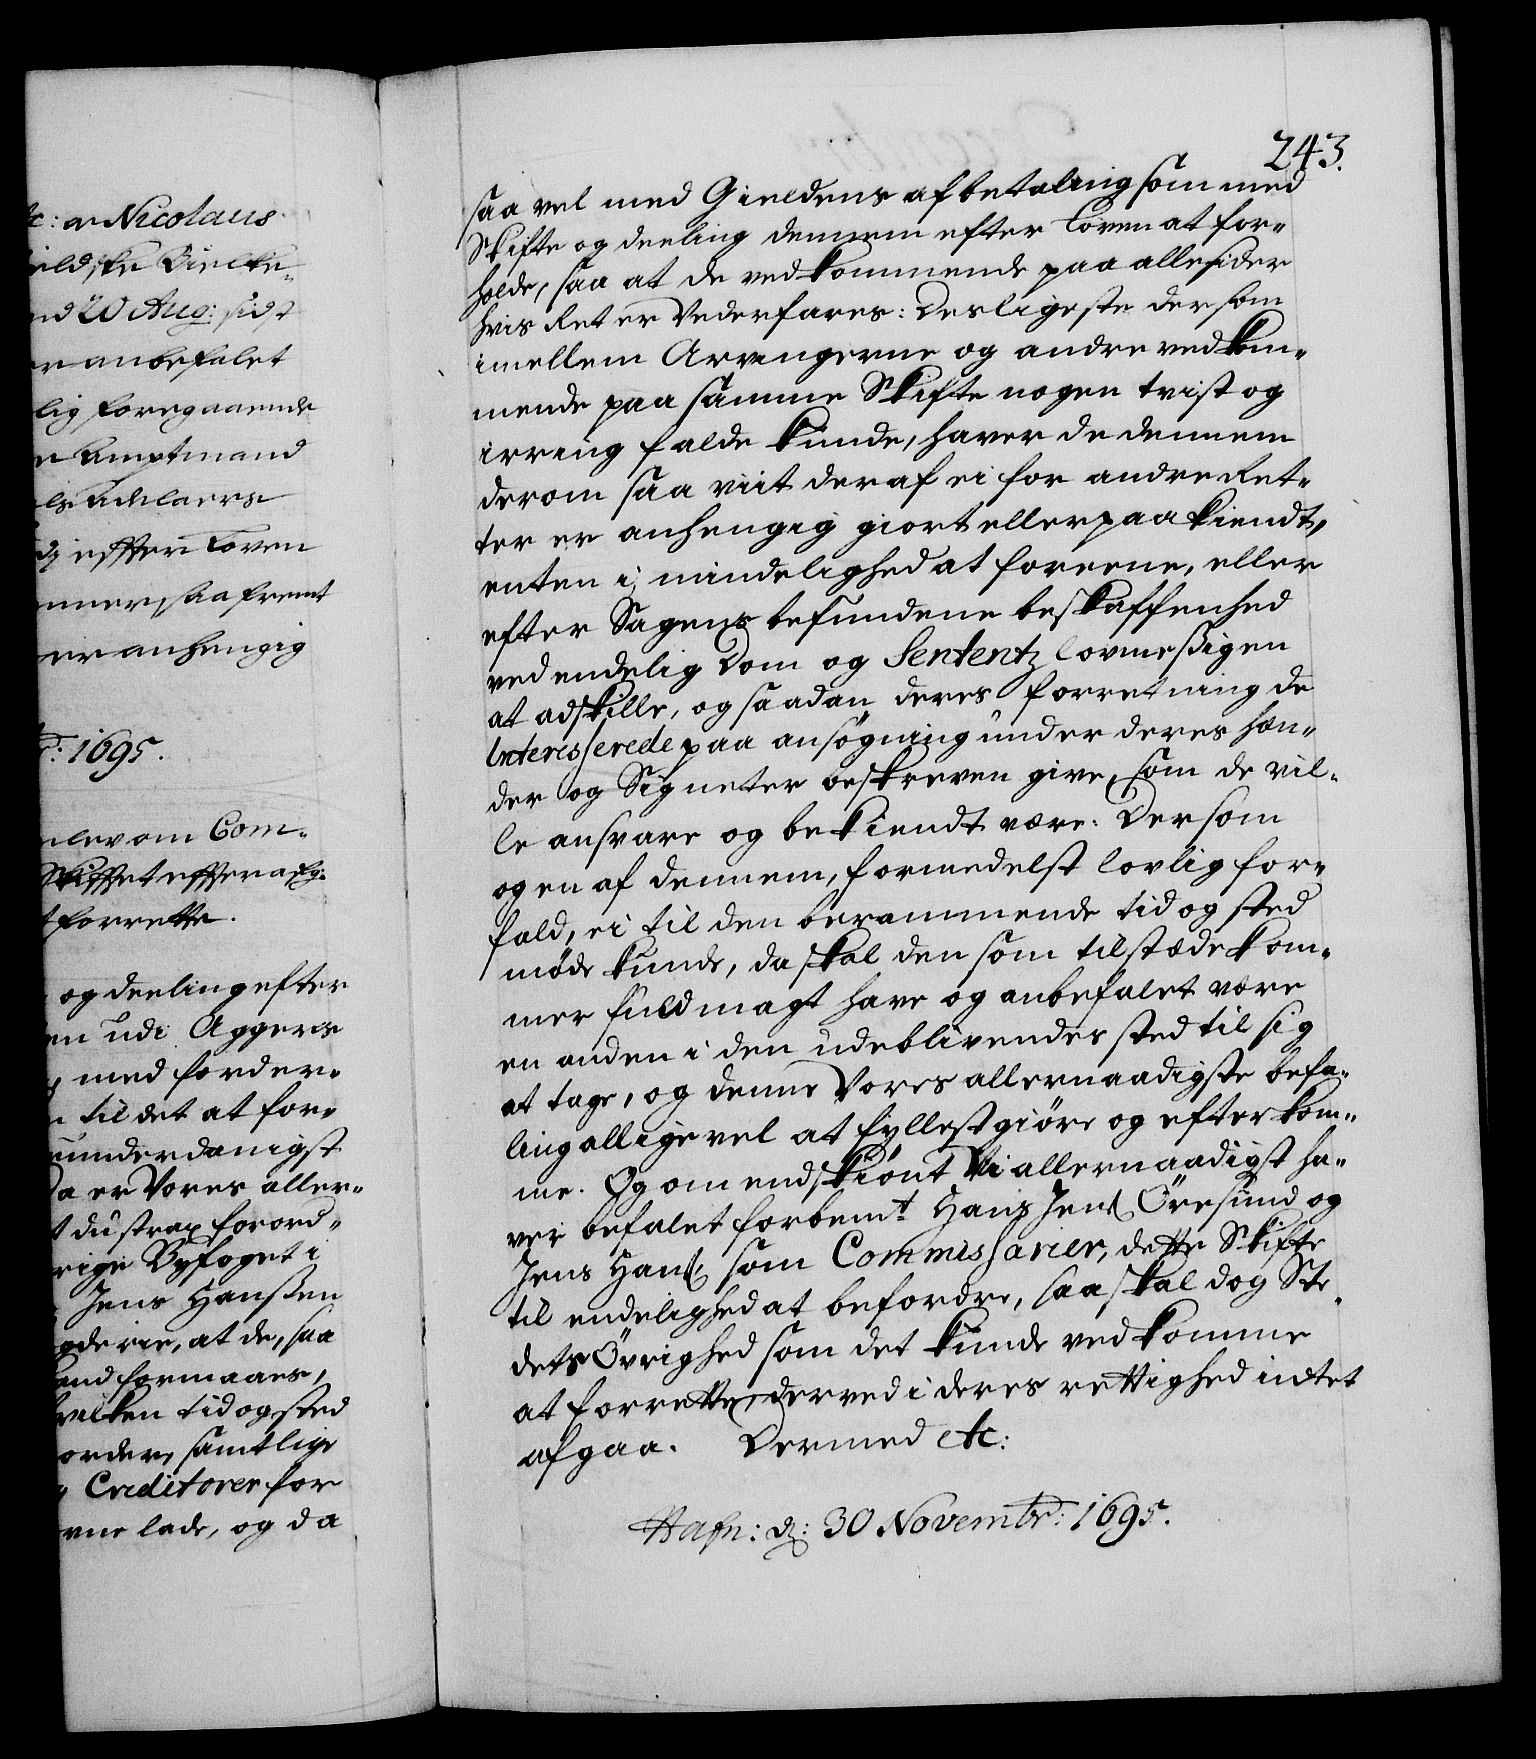 c: a Nicolaus
ieldske Bielke-
nd 20 Aug: sidst
er anbefalet
lig foregaaende
n Amptmand
els Adelaers
efter Loven
saafremt
er anhengig
r: 1695.
om Com-
Skiftet efter afg:
t forrette.
og deeling efter
en udi Aggers
med forder-
til det at for-
underdanigst
da er Vores aller-
t du strax forord-
rige Byfoget i
Jens Hanßen
gderie, at de, saa
and formaaes,
vilken tid og sted
order, samtlige
Creditorer for
rne lade, og da
243.
saa vel med Gieldens afbetaling som med
Skifte og deeling dennem efter Loven at for-
holde, saa at de vedkommende paa alle sider
hvis Ret er Vederfares: Desligeste dersom
imellem Arvingerne og andre vedkom-
mende paa samme Skifte nogen tvist og
irring falde kunde, haver de dennem
derom saa viit deraf ei for andre Ret-
ter er anhengig giort eller paakiendt,
enten i mindelighed at foreene, eller
efter Sagens befundene beskaffenhed
ved endelig Dom og Sententz lovmeßigen
at adskille, og saadan deres forretning de
Interesserede paa ansøgning under deres hæn-
der og Signeter beskreven give, som de vil-
le ansvare og bekiendt være: Dersom
ogen af dennem, formedelst lovlig for-
fald, ei til den berammende tid og sted
møde kunde, da skal den som tilstæde kom-
mer fuldmagt have og anbefalet være
en anden i den udeblivendes sted til sig
at tage, og denne Vores allernaadigste befa-
ling alligevel at fyllestgiøre og efterkom-
me. Og om endskiønt Vi allernaadigst ha-
ver befalet forbemt. Hans Jens Øresund og
Jens Hans: som Commissarier, dette Skifte
til endelighed at befordre, saa skal dog Ste-
dets Øvrighed som det kunde vedkomme
at forrette, derved i deres rettighed intet
afgaa. Dermed etc:
Hafn: d: 30 Novembr: 1695.